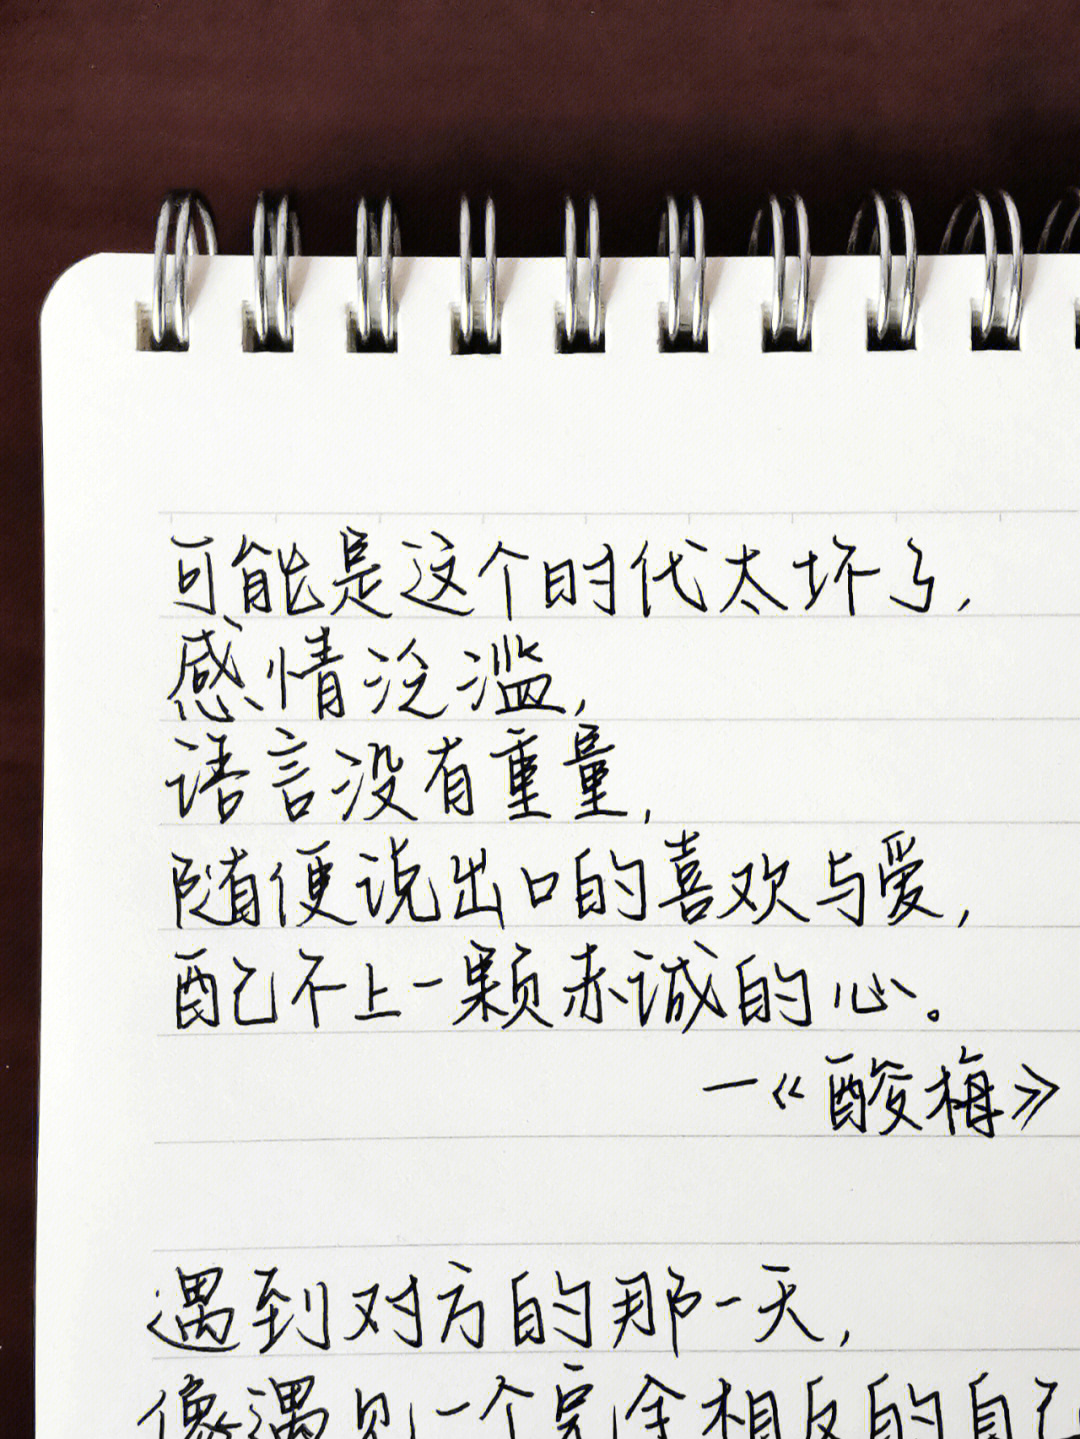 可能是这个时代太坏了,
感情泛滥,
语言没有重量,
随便说出口的喜欢与爱,
配不上一颗赤诚的心。
—《酸梅》
遇到对方的那一天,
像遇见一个完全相反的自己